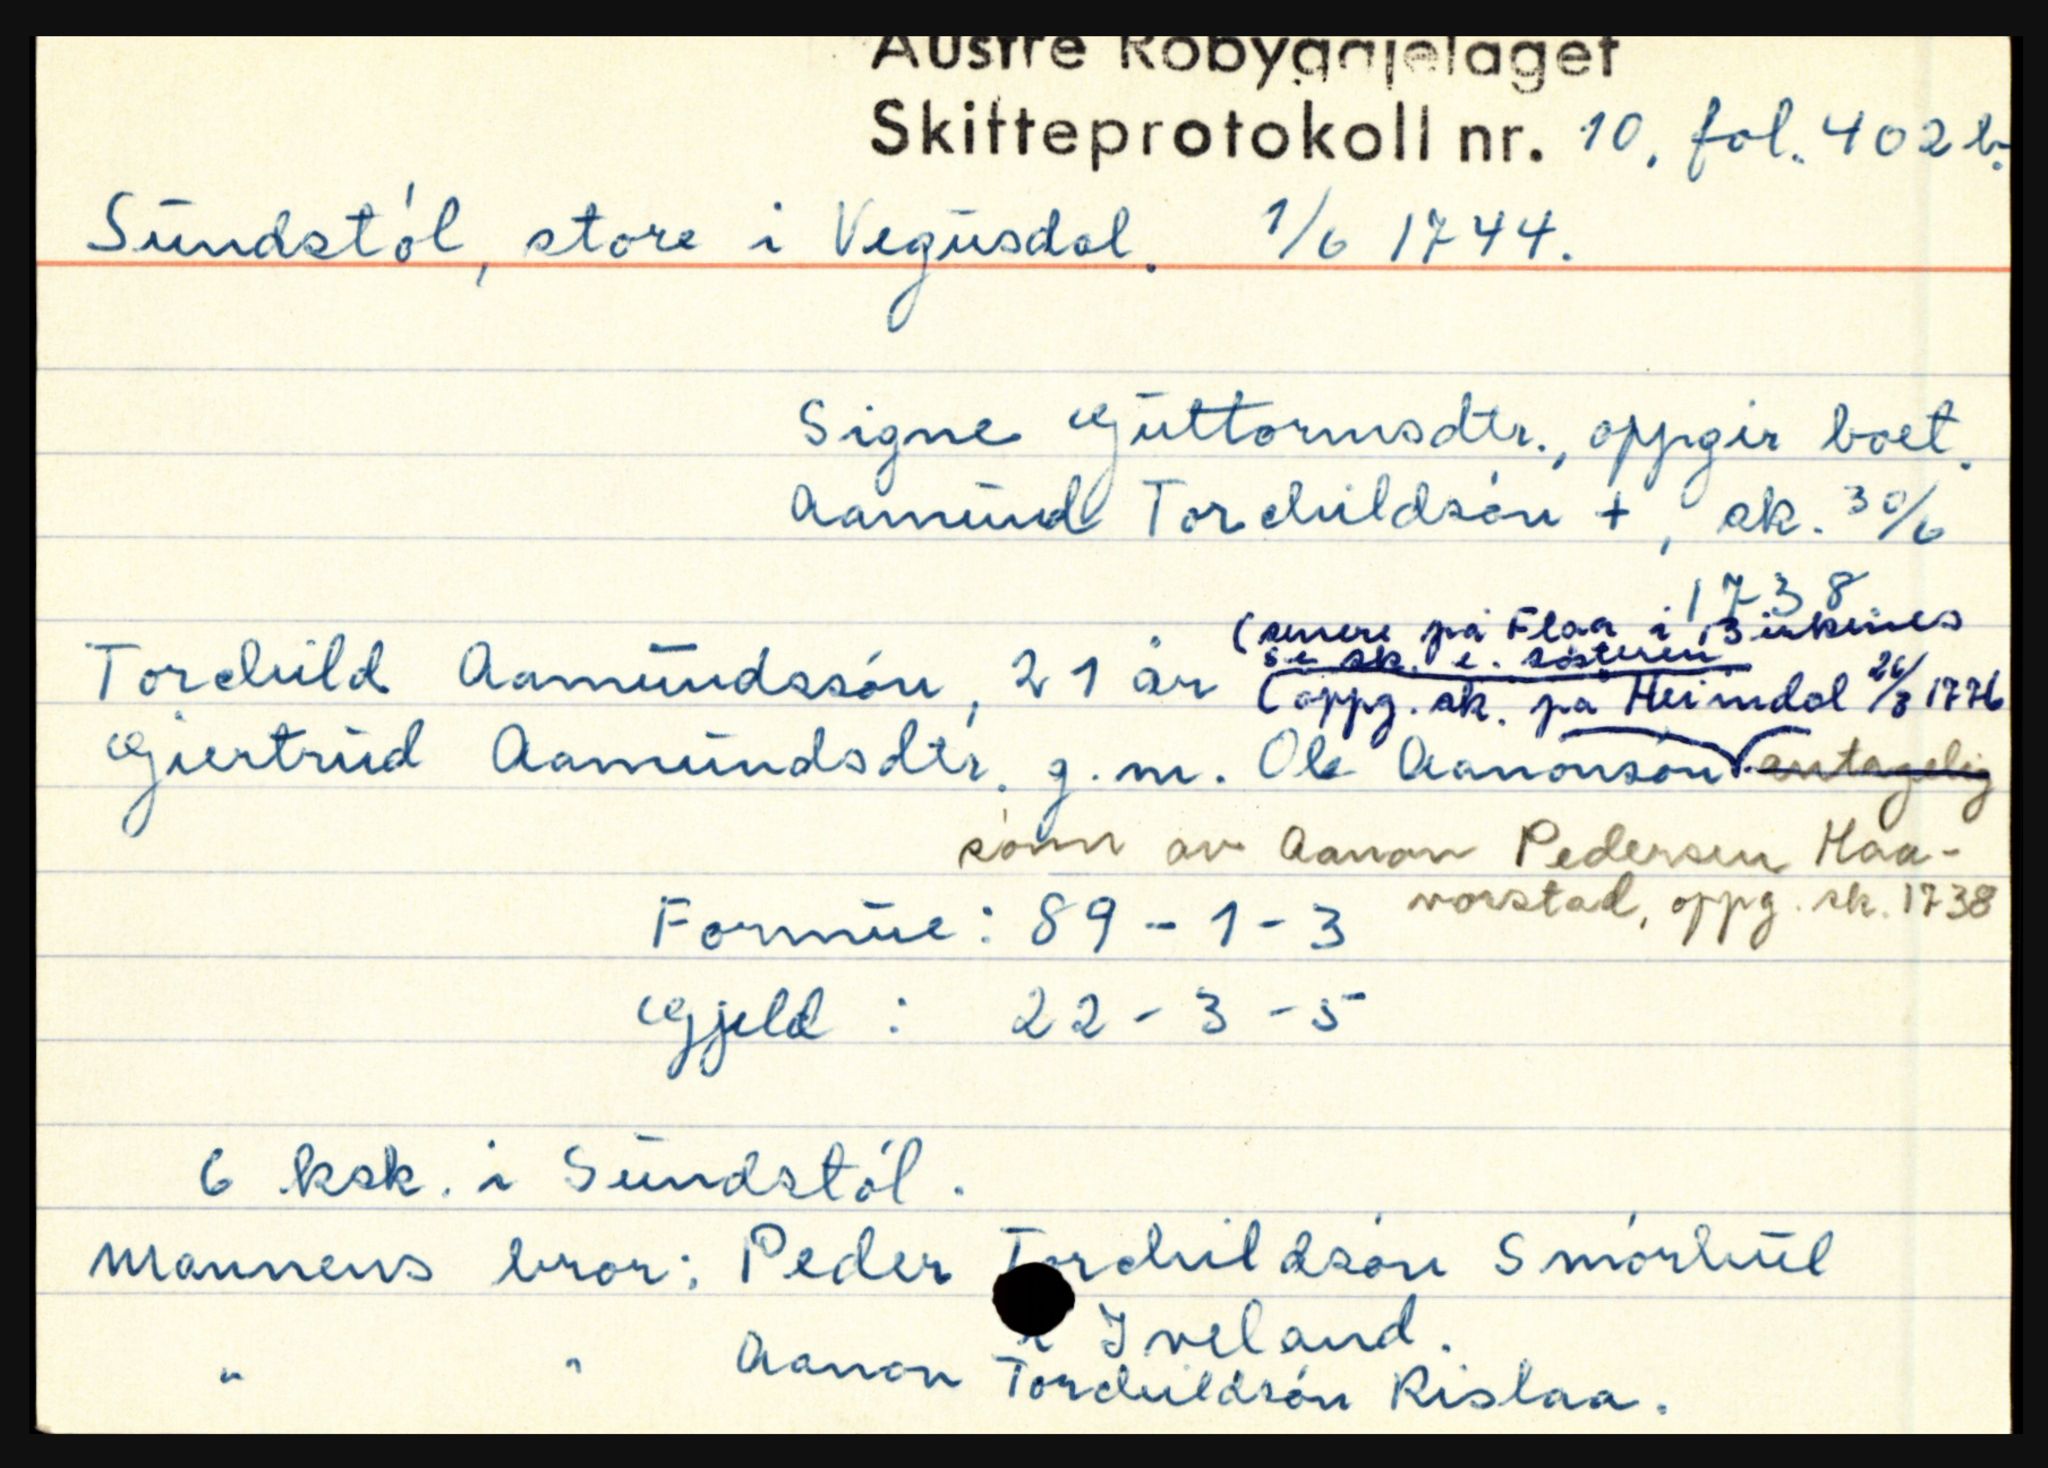 Austre Robyggjelaget
Skifteprotokoll nr. 10, fol. 402 b.
Sundstøl, store i Vegusdal. 1/6 1744.
Signe Guttormsdtr., oppgir boet.
Aamund Torchildsøn +, sk. 30/6
1738
(senere på Flaa i Birkenes
se sk. e. søsteren
Torchild Aamundssøn, 21 år (oppg. sk. på Heimdal 26/3 1776
Giertrud Aamundsdtr. g.m. Ole Aanonsøn antagelig
sønn av Aanon Pedersen Haa-
vorstad, oppg. sk. 1738
Formue: 89 - 1 - 3
Gjeld : 22 - 3 - 5
6 ksk. i Sundstøl.
Mannens bror: Peder Torchildsøn Smørhul
i Iveland.
" " Aanon Torchildsøn Rislaa.